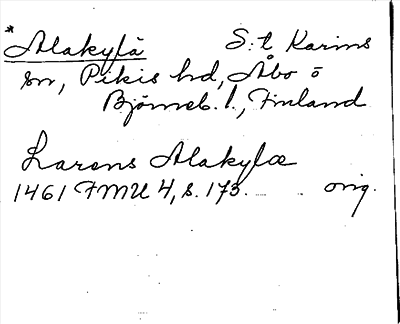 * Alakylä S:t Karins
sn, Pikis hd, Åbo o
Björneb. l., Finland
Larens Alakylæ
1461 FMU 4, s. 173. orig.